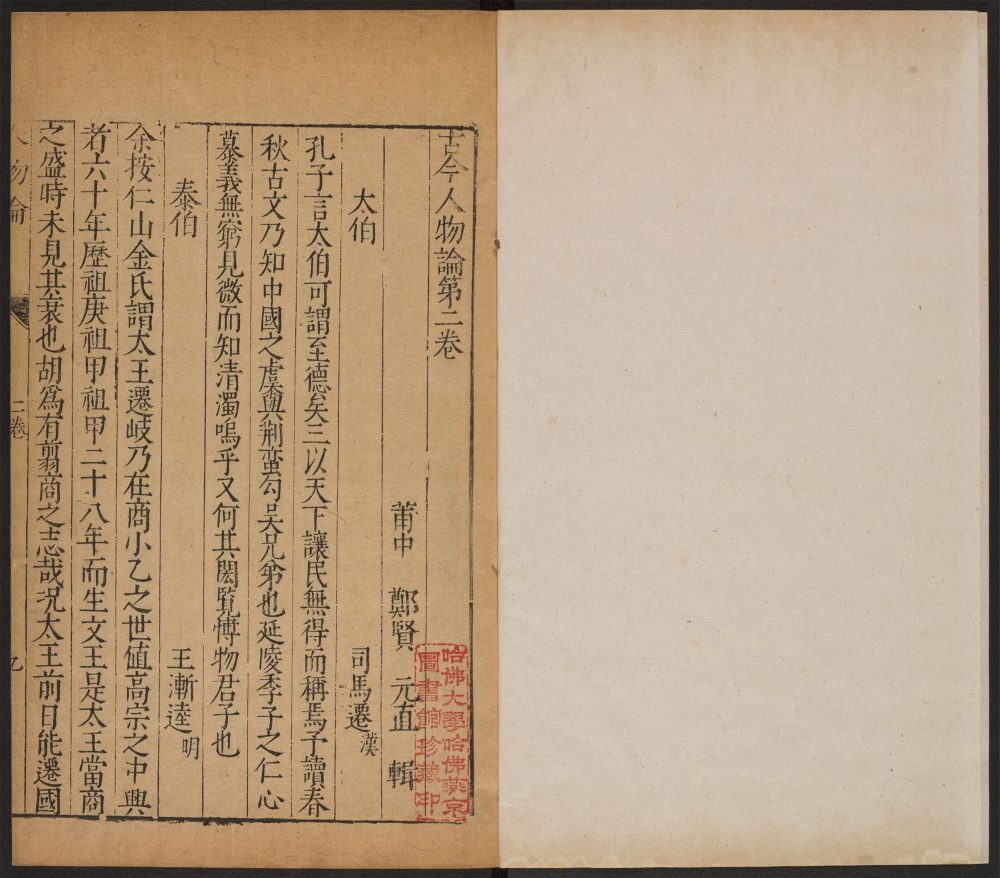 古今人物論第二卷
莆中 鄭賢 元直 輯
太伯 司馬遷 漢
孔子言太伯可謂至德矣三以天下讓民無得而稱焉予讀春
秋古文乃知中國之虞與荆蠻勾吳兄弟也延陵季子之仁心
慕義無窮見微而知清濁嗚乎又何其閎覽愽物君子也
泰伯 王漸逵 明
余按仁山金氏謂太王遷岐乃在商小乙之世値高宗之中興
者六十年歷祖庚祖甲祖甲二十八年而生文王是太王當商
之盛時未見其衰也胡爲有翦商之志哉况太王前日能遷國
人物論 二卷 九
哈佛大學哈佛燕京
圖書館珍藏印